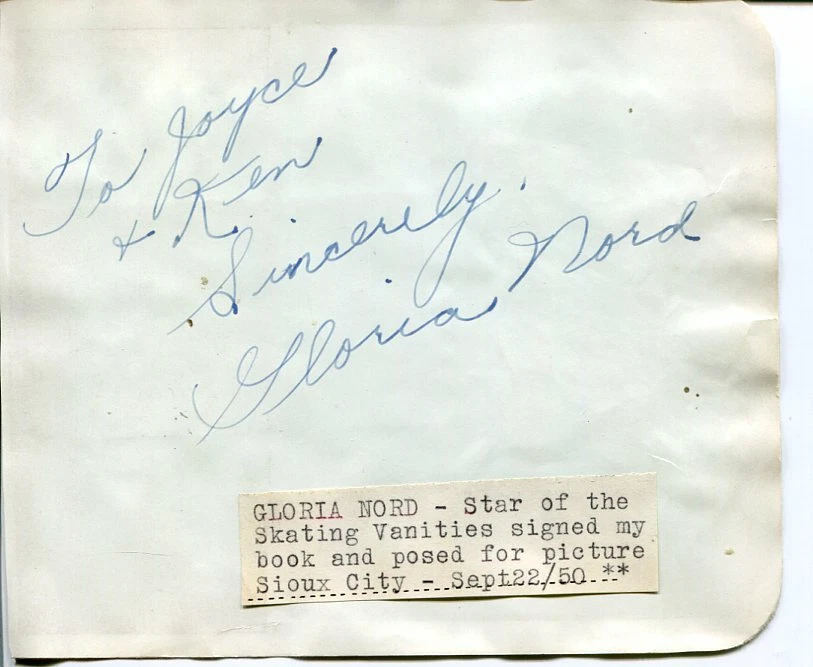 To Joyce
+ Ken
Sincerely,
Gloria Nord
GLORIA NORD - Star of the
Skating Vanities signed my
book and posed for picture
Sioux City - Sept22/50 **